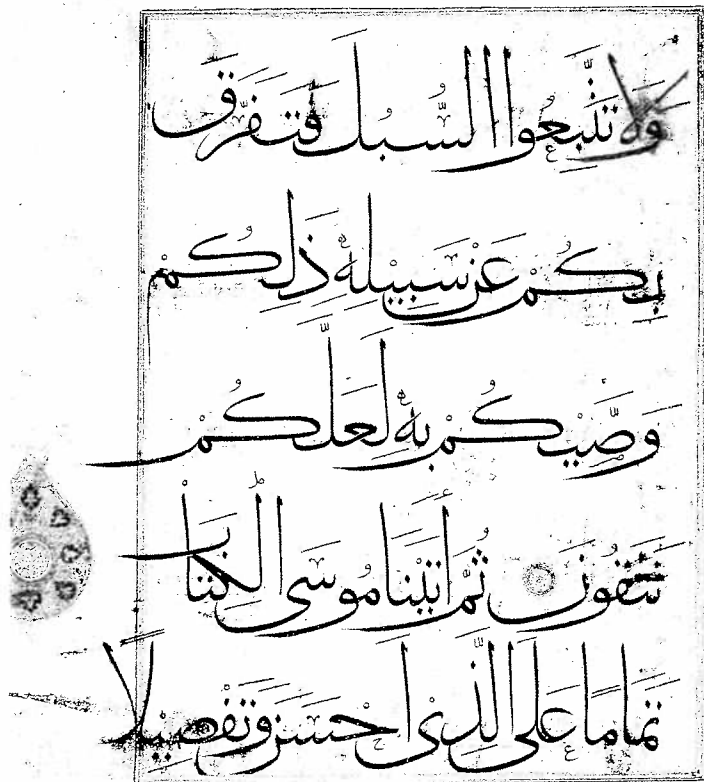 وَلَا تَتَّبِعُوا السُّبُلَ فَتَفَرَّقَ
بِكُمْ عَنْ سَبِيلِهِ ذَٰلِكُمْ
وَصّٰيكُمْ بِهِ لَعَلَّكُمْ
تَتَّقُونَ ثُمَّ اٰتَيْنَا مُوسَى الْكِتَابَ
تَمَامًا عَلَى الَّذِى اَحْسَنَ وَتَفْصِيلًا